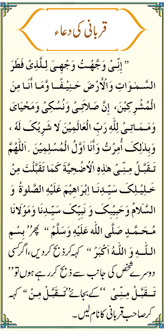 قربانی کی دعاء
”إِنِّيْ وَجَّهْتُ وَجْهِيَ لِلَّذِيْ فَطَرَ
السَّمٰوَاتِ وَالْأَرْضَ حَنِيْفًا وَّمَا أَنَا مِنَ
الْمُشْرِكِيْنَ، إِنَّ صَلَاتِيْ وَنُسُكِيْ وَمَحْيَايَ
وَمَمَاتِيْ لِلّٰهِ رَبِّ الْعَالَمِيْنَ لَا شَرِيْكَ لَهُ،
وَبِذٰلِكَ أُمِرْتُ وَأَنَا أَوَّلُ الْمُسْلِمِيْنَ۔ اَللّٰهُمَّ
تَقَبَّلْ مِنِّيْ هٰذِهِ الْأُضْحِيَّةَ كَمَا تَقَبَّلْتَ مِنْ
خَلِيْلِكَ سَيِّدِنَا إِبْرَاهِيْمَ عَلَيْهِ الصَّلٰوةُ وَ
السَّلَامُ وَحَبِيْبِكَ وَ نَبِيِّكَ سَيِّدِنَا وَمَوْلَانَا
مُحَمَّدٍ صَلَّى اللّٰهُ عَلَيْهِ وَسَلَّمَ“ پھر ”بِسْمِ
اللّٰهِ وَ اللّٰهُ أَكْبَرُ“ کہہ کر ذبح کردیں، اگر کسی
دوسرے شخص کی جانب سے ذبح کررہے ہوں تو ”
تَقَبَّلْ مِنِّيْ“ کے بجائے ”تَقَبَّلْ مِنْ“ کہہ
کر صاحبِ قربانی کا نام لیں۔